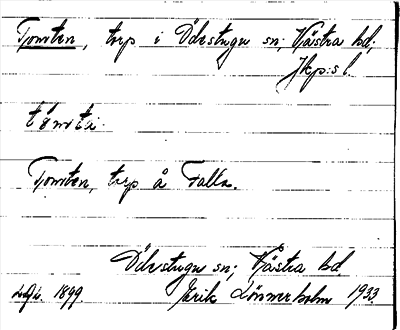 Tomten, torp i Ödestugu sn; Västra hd;
Jkp:s l.
tómta
Tomten, torp å Falla.
Ödestugu sn; Västra hd.
1899. Erik Lönnerholm 1933